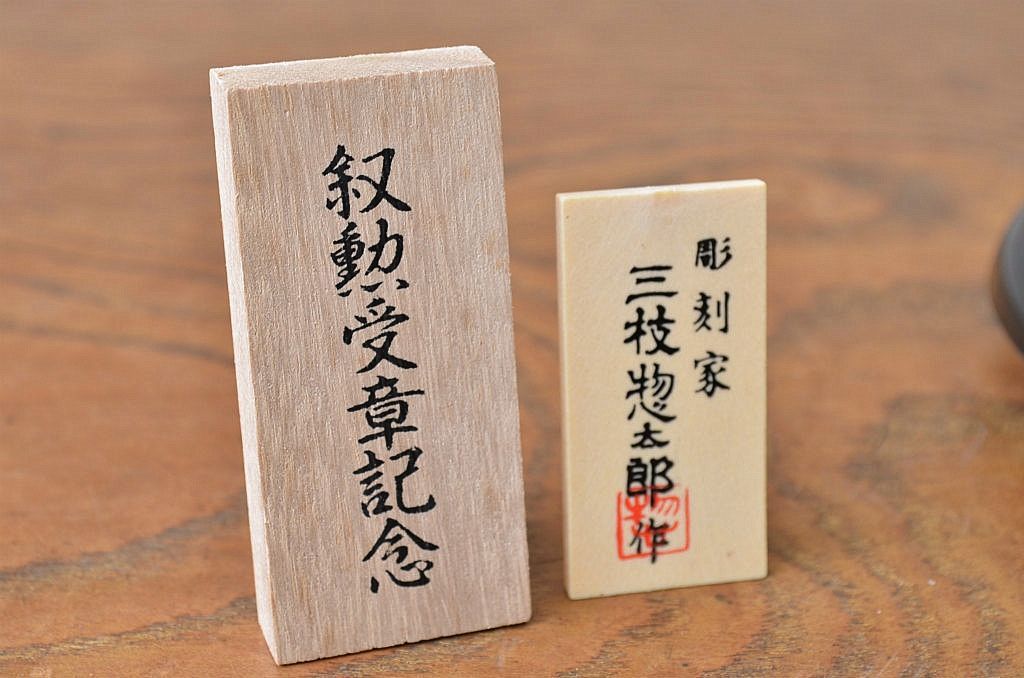 叙勲受章記念
彫刻家
三枝惣太郎作